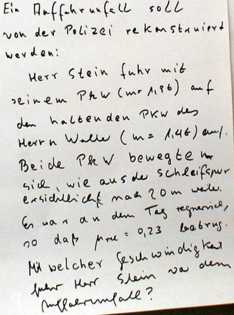 Ein Auffahrunfall soll
von der Polizei rekonstruiert
werden:
Herr Stein fuhr mit
seinem PKW (m= 1,8t) auf
den haltenden PKW des
Herrn Walter (m= 1,4t) auf.
Beide PKW bewegten
sich, wie aus der Schleifspur
ersichtlich noch 20m weiter.
Es war an dem Tag regnerisch,
so daß = 0,23 betrug.
Mit welcher Geschwindigkeit
fuhr Herr Stein vor dem
Auffahrunfall?